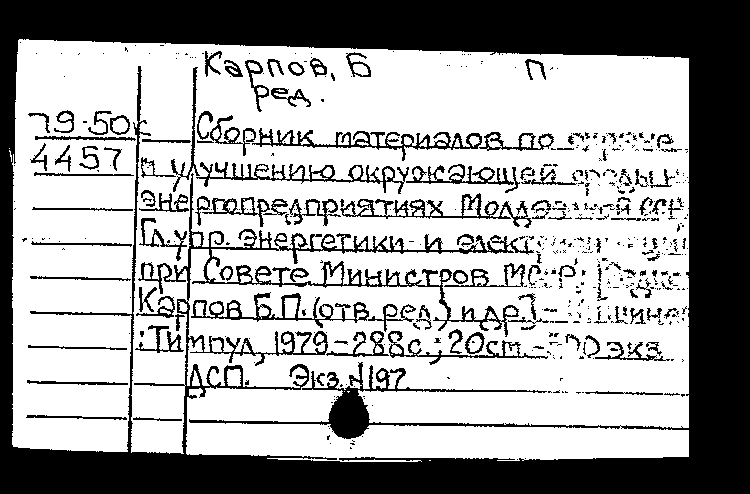 Карпов, Б П
ред.
79-50к Сборник материалов по охране
4457 и улучшению окружающей среды н
энергопредприятиях Молдавской ССР
Гл. упр. энергетики и
при Совете Министров МССР;
Карпов Б.П. (отв. ред.) и др.] -
: Тимпул, 1979.-288с.; 20см.-500 экз
ДСП. Экз. №197.